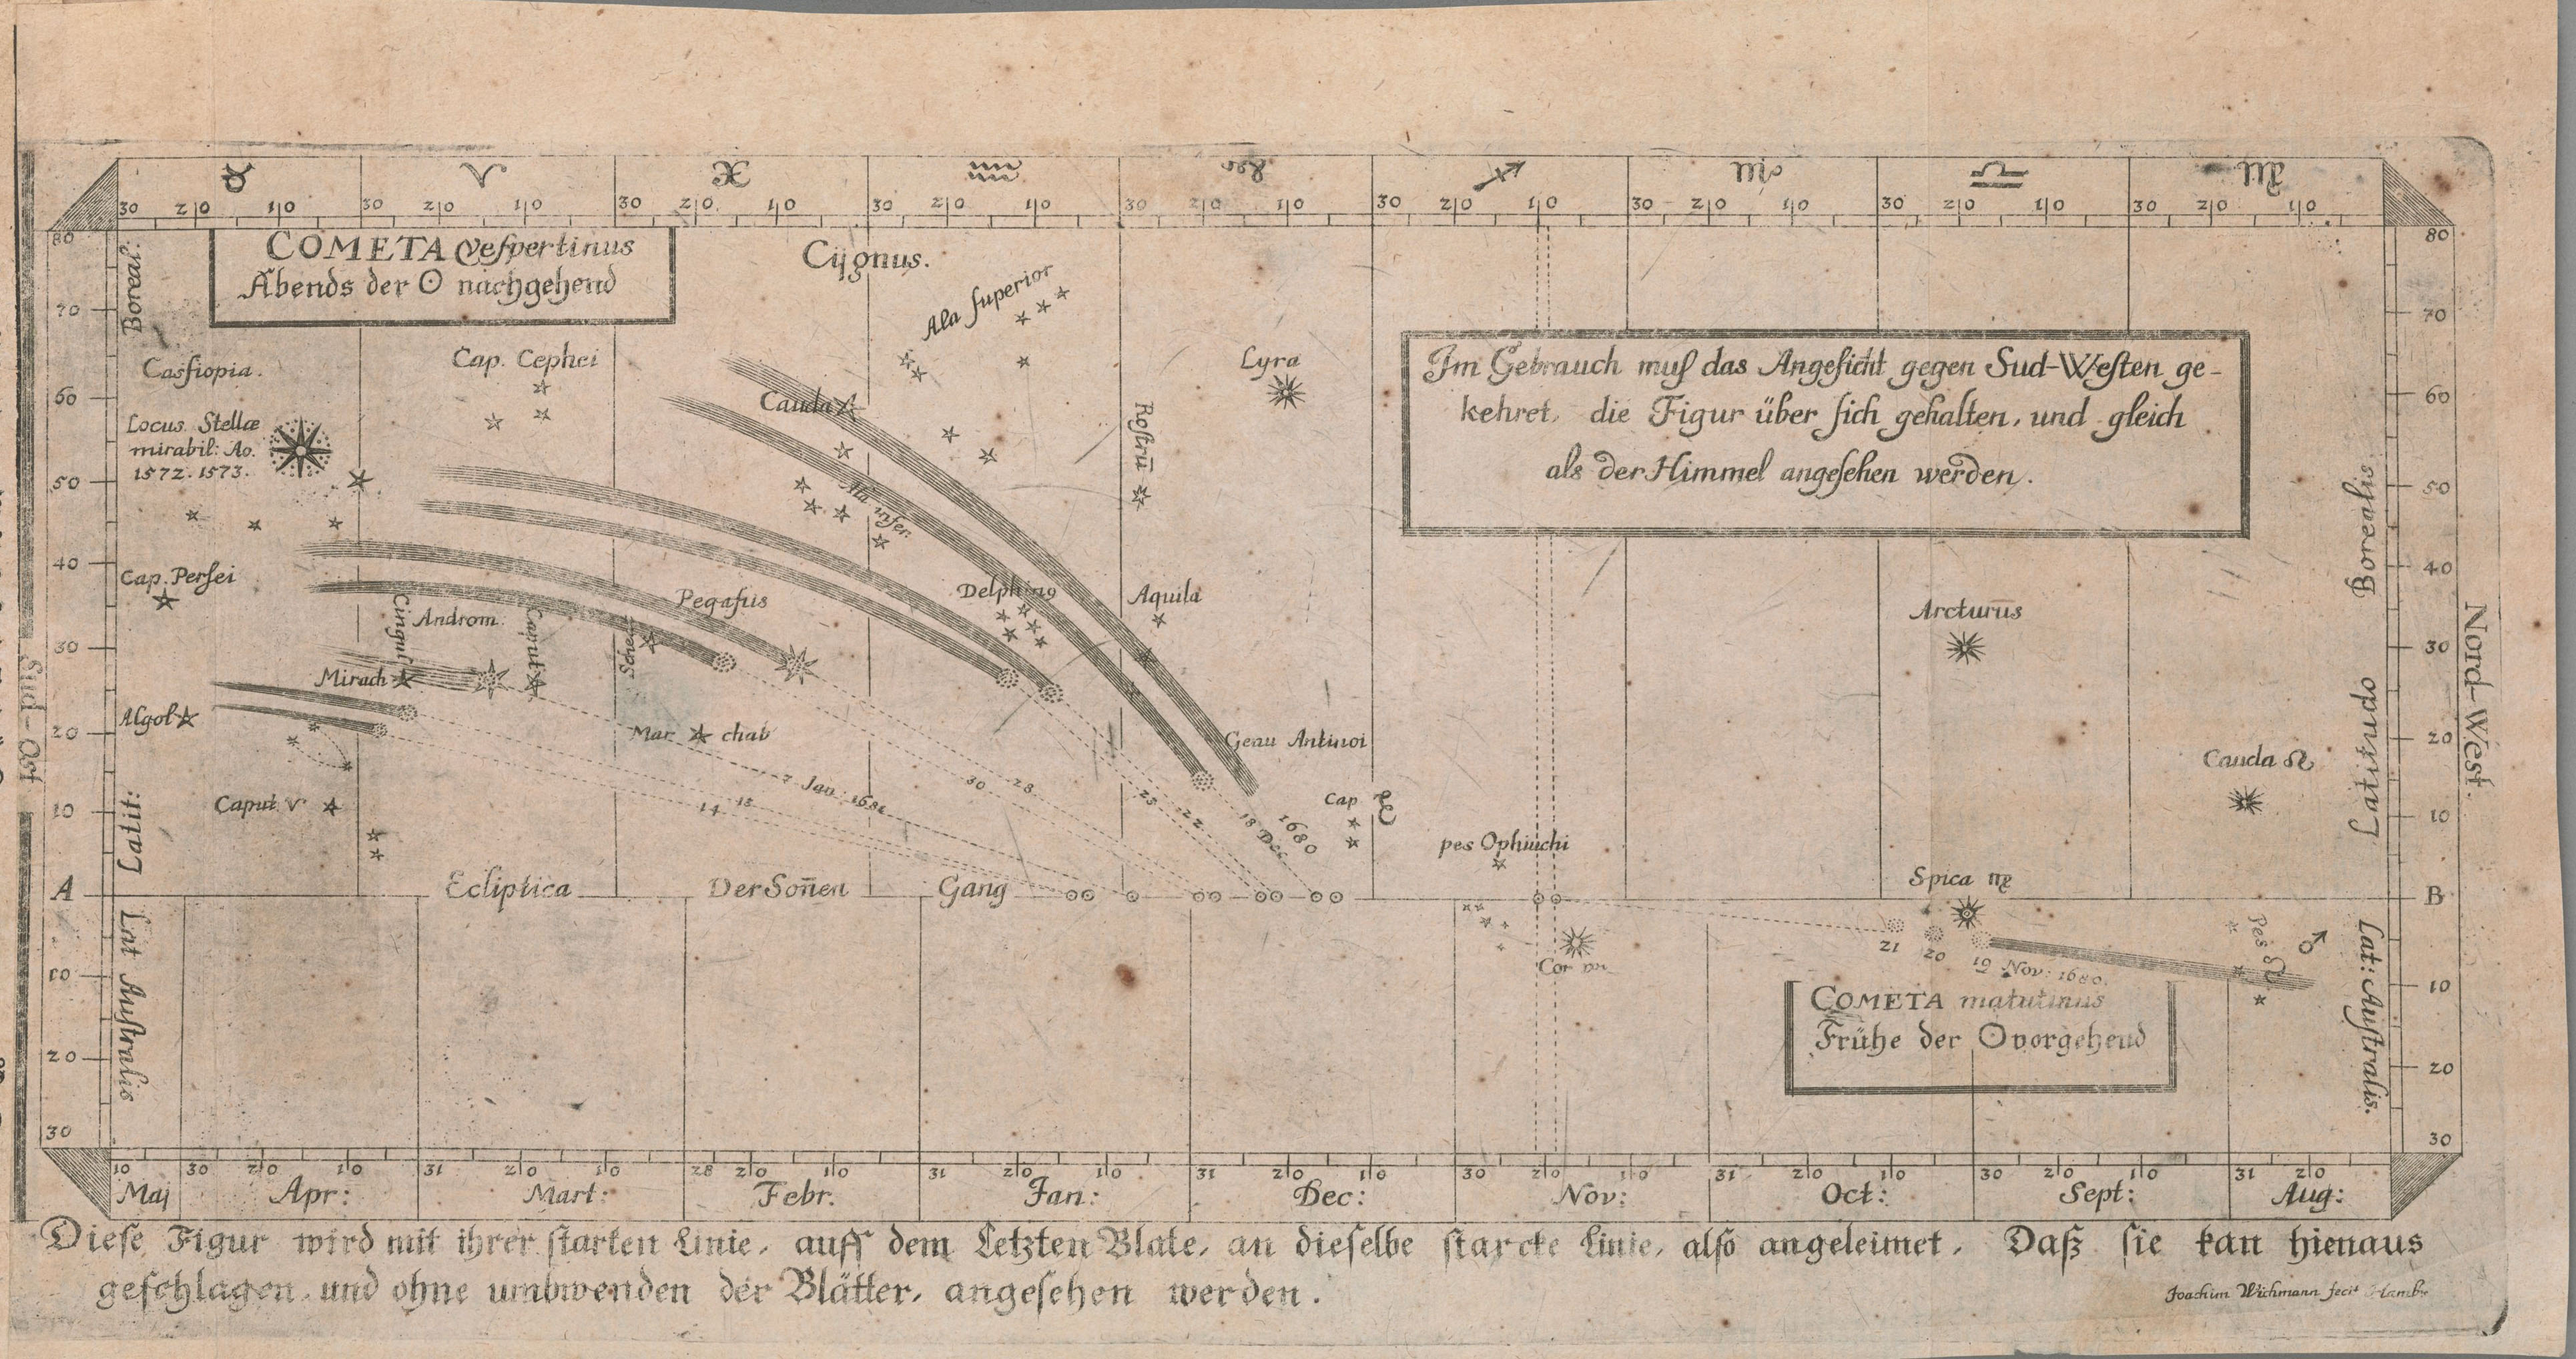 ♉ ♈ ♓ ♒ ♑ ♐ ♏ ♎ ♍
30 20 10 30 20 10 30 20 10 30 20 10 30 20 10 30 20 10 30 20 10 30 20 10 30 20 10
COMETA vespertinus
Abends der ☉ nachgehend
Cygnus.
Ala superior
Cassiopia.
Cap. Cephei
Lyra
Cauda
Rostrū
Locus Stellæ
mirabil: Ao.
1572. 1573.
Im Gebrauch muß das Angesicht gegen Sud-Westen ge-
kehret, die Figur über sich gehalten, und gleich
als der Himmel angesehen werden.
Ala infer.
Cap. Persei
Cingul
Androm.
Caput
Pegasus
Scheat
Aquila
Arcturus
Mirach
Algol
Mar chab
Genu Antinoi
Cauda ♌
Caput ♈
14 13 7 Jan: 1681 30 28 23 22 18 Dec 1680
Cap
pes Ophiuchi
Spica ♍
A Ecliptica Der Soñen Gang B
Cor ♏
21 20 19 Nov: 1680.
Pes ♌ ♂
COMETA matutinus
Frühe der ☉ vorgehend
80 70 60 50 40 30 20 10 A 10 20 30
Boreal:
Latit:
Lat Australis
Sud-Ost
80 70 60 50 40 30 20 10 B 10 20 30
Latitudo Borealis
Lat: Australis.
Nord-West
10 30 20 10 31 20 10 28 20 10 31 20 10 31 20 10 30 20 10 31 20 10 30 20 10 31 20
Maj Apr: Mart: Febr. Jan: Dec: Nov: Oct: Sept: Aug:
Diese Figur wird mit ihrer starken Linie, auff dem Letzten Blate, an dieselbe starcke Linie, also angeleimet, Daß sie kan hienaus
geschlagen, und ohne umbwenden der Blätter, angesehen werden.
Joachim Wichmann fecit Hamb: